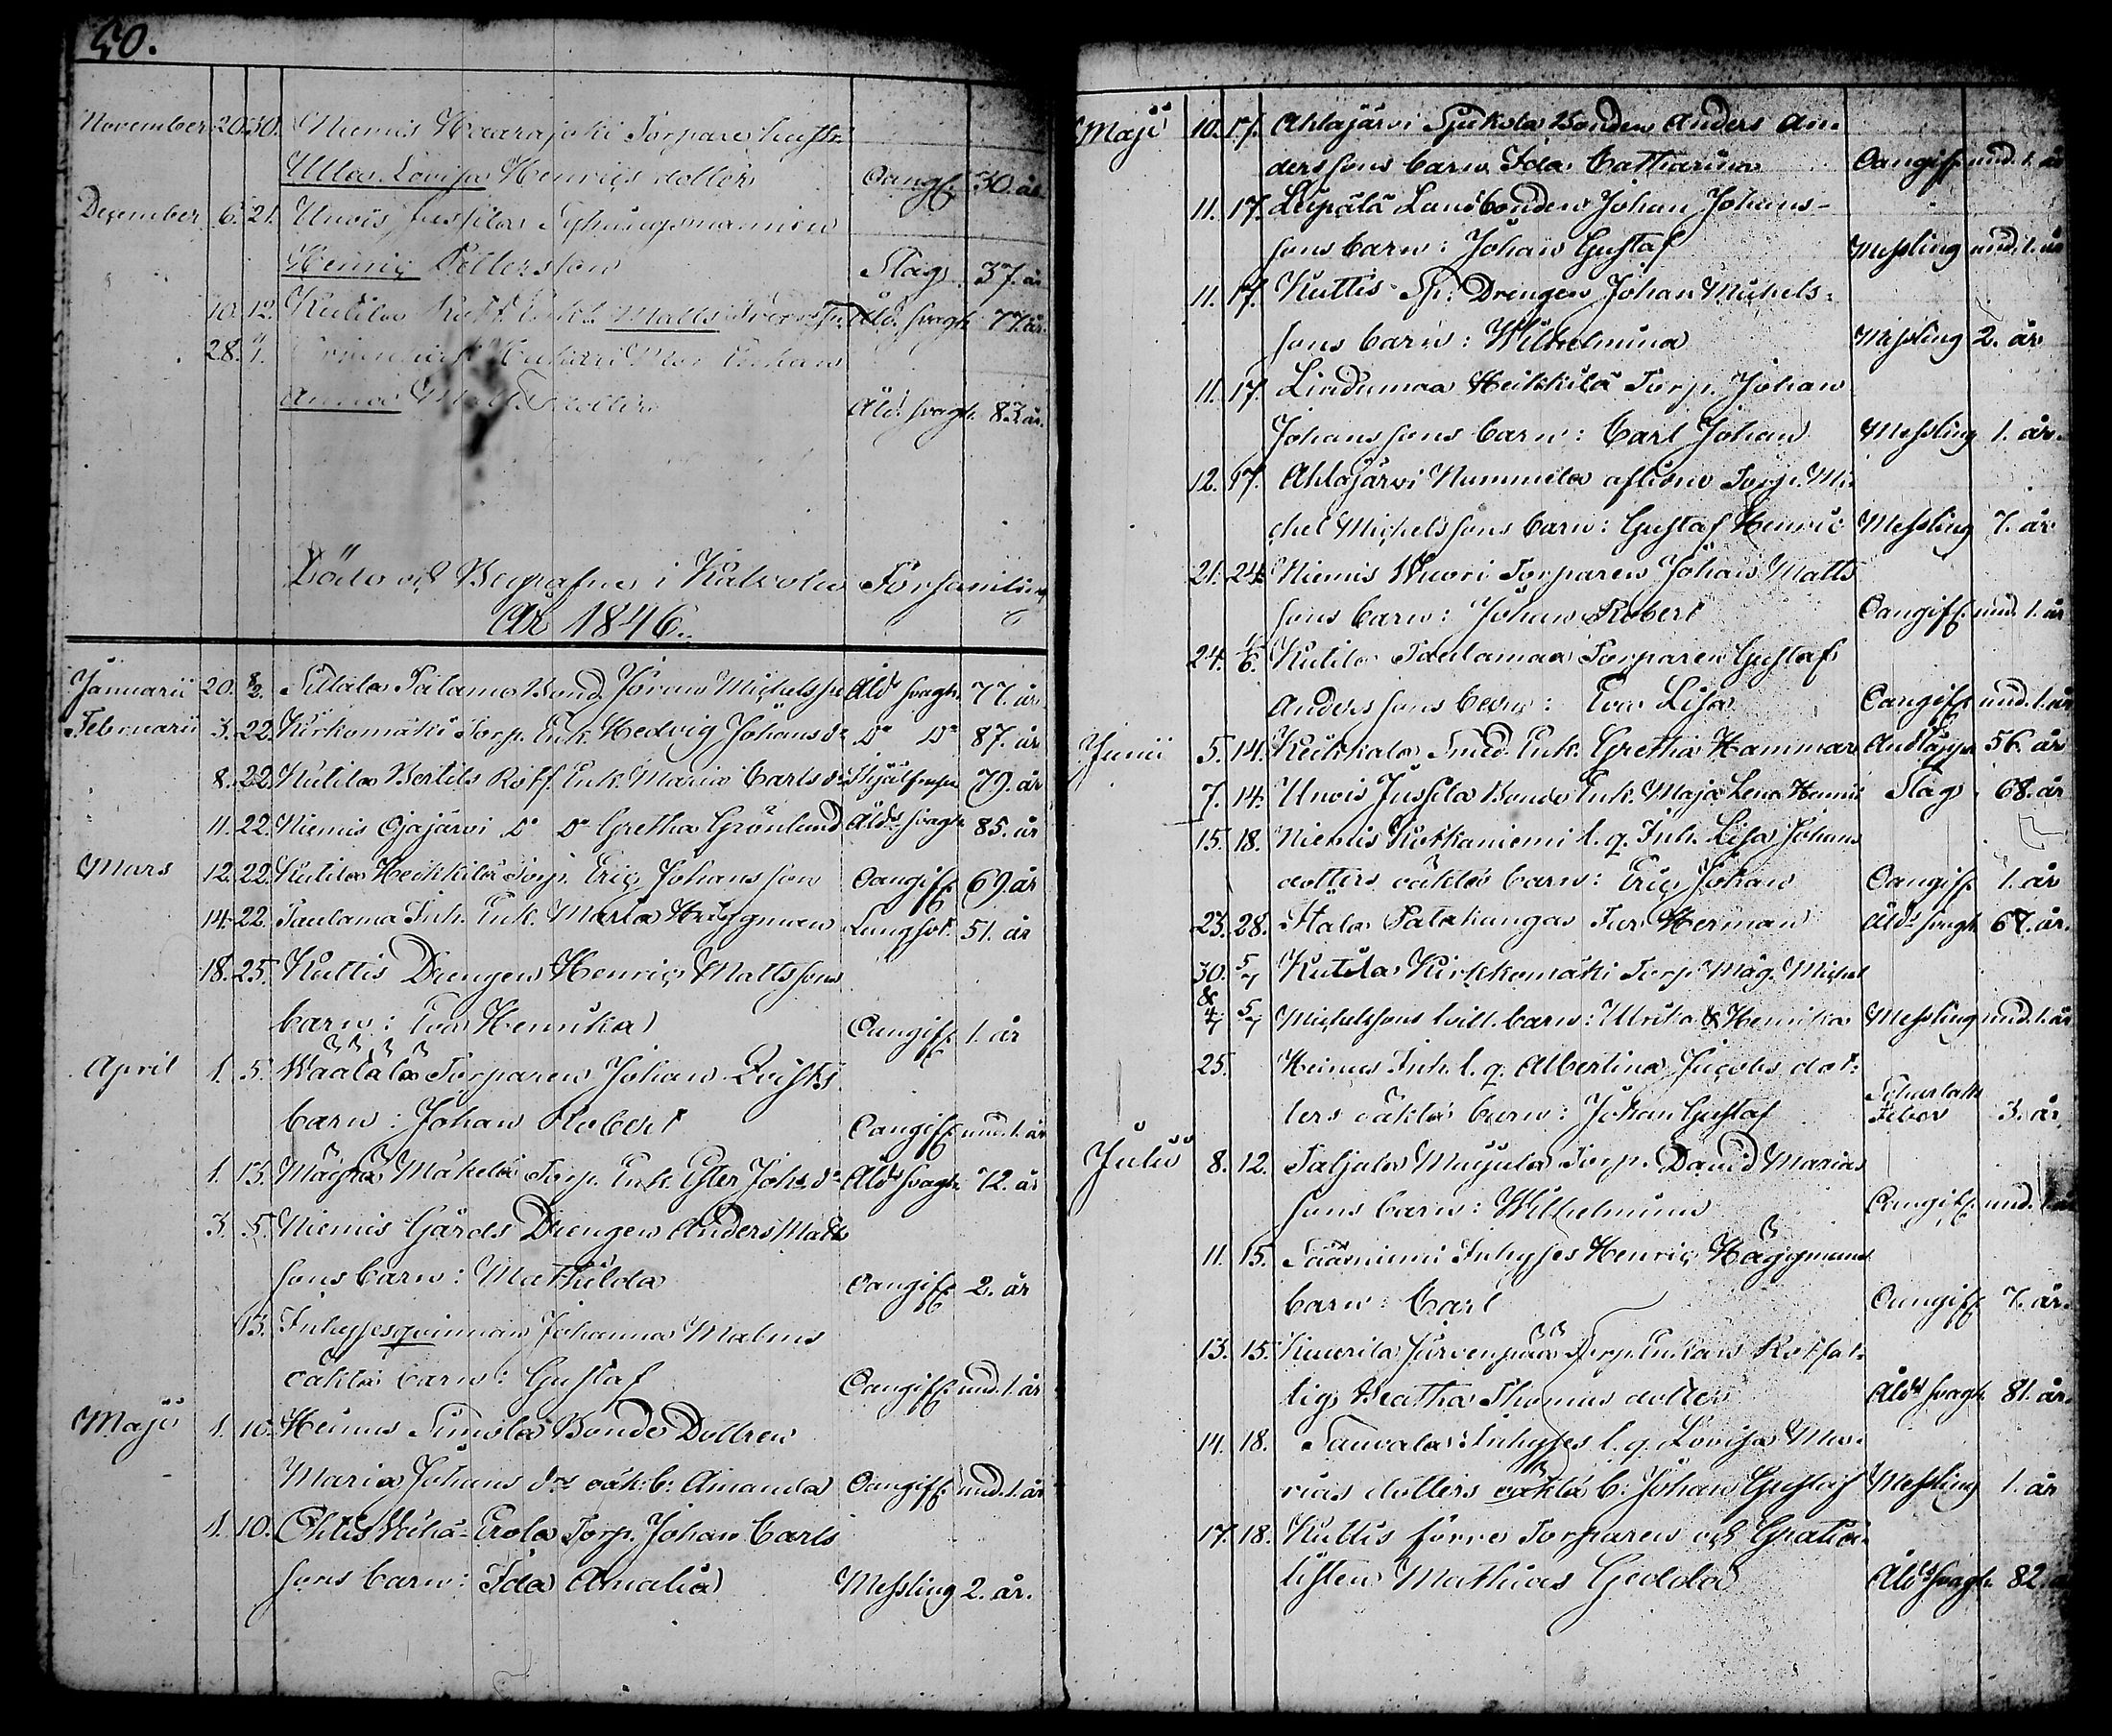 50.
November 20. 30. Niemis Haarajoki Torpare hustr.
Ulla Lovisa Henrics dotter Oangif. 30. år
December 6. 21. Unois Jussila Sexmannen
Henric Pettersson Slag 37. år
10. 12. Kutila Rotf. Enkl. Matts Åld. svagh. 77. år
28. Enkan
Anna Matts dotter Åld. svagh. 83. år.
Döde och Begrafne i Kalvola Församling
År 1846.
Januarii 20. 8/2. Sittala Talama Bond. Jöran Michelsson Åld. svagh. 77. år
Februarii 3. 22. Kirkomäki Torp. Enk. Hedvig Johans dr. Do Do 87. år
8. 22. Kutila Bertils Rotf. Enk. Maria Carls dr. 79. år
11. 22. Niemis Ojajärvi Do Do Gretha Grönlund Åld. svagh. 85. år
Mars 12. 22. Kutila Heikkilä Torp. Eric Johansson Oangif. 69. år
14. 22. Taulama Inh. Enk. Maria Häggman Lungsot. 51. år
18. 25. Kuttis Drengen Henric Mattssons
barn: Eva Henrika Oangif. 1. år
April 1. 5. Wäälälä Torparen Johan Qvists
barn: Johan Robert Oangif. und. 1. år
1. 13. Mäyrä Mäkelä Torp. Enk. Ester Joh. dr. Åld. svagh. 72. år
3. 5. Niemis Gårds Drengen Anders Matts
sons barn: Mathilda Oangif. 2. år
13. Inhysesqvinnan Johanna Malms
oäkta barn: Gustaf Oangif. und. 1. år
Maji 1. 10. Heinus Simola Bonde Dottren
Maria Johans drs oäk: b: Amanda Oangif. und. 1. år
1. 10. Ohtis Vähä-Erola Torp. Johan Carls
sons barn: Ida Amalia Messling 2. år.
Maji 10. 17. Ahlajärvi Sipikola Bonden Anders An-
derssons barn Ida Catharina Oangif. und. 1. år
11. 17. Leipälä Landbonden Johan Johans-
sons barn: Johan Gustaf Messling und. 1. år
11. 17. Kuttis Sp: Drengen Johan Michels-
sons barn: Wilhelmina Messling 2. år
11. 17. Lindumaa Heikkilä Torp. Johan
Johanssons barn: Carl Johan Messling 1. år.
12. 17. Ahlajärvi Nummila aflidne Torp. Mi-
chel Michelssons barn: Gustaf Henric Messling 7. år
21. 24. Niemis Wuori Torparen Johan Matts
sons barn: Johan Robert Oangif. und. 1. år
24. 1/6. Kutila Taulamaa Torparen Gustaf
Anderssons barn: Eva Lisa Oangif. und. 1. år
Junii 5. 14. Keikkala Smed. Enk. Gretha Hammar Andtäppa 56. år
7. 14. Unois Jussila Bonde Enk. Maja Lena Henric Slag 68. år
15. 18. Niemis Kotkaniemi l. q. Inh. Lisa Johans
dotters oäkta barn: Eric Johan Oangif. 1. år
23. 28. Ståla Palakunga Herman Åld. svagh. 67. år.
30. 5/7 Kutila Kirkkomäki Torp. Måg. Michel
& 4/7 5/7 Michelssons tvill. barn: Ulrika & Henrika Messling und. 1. år
25. Heinus Inh. l. q. Albertina Jacobs dot-
ters oäkta barn: Johan Gustaf Scharlak. Feber 3. år
Julii 8. 12. Taljala Torp. David Marias
sons barn: Wilhelmina Oangif. und. 1. år
11. 15. Sääniemi Inhyses Henric Häggmans
barn: Carl Oangif. 7. år.
13. 15. Kuurila Järvenpää Torp. Enkan Rotfat-
tig Beatha Thomas dotter Åld. svagh. 81. år.
14. 18. Sauvala Inhyses l. q. Lovisa Ma-
rias dotters oäkta b: Johan Gustaf Messling 1. år
17. 18. Kuttis förre Torparen och Gratia-
listen Mathias Gedda Åld. svagh. 82.